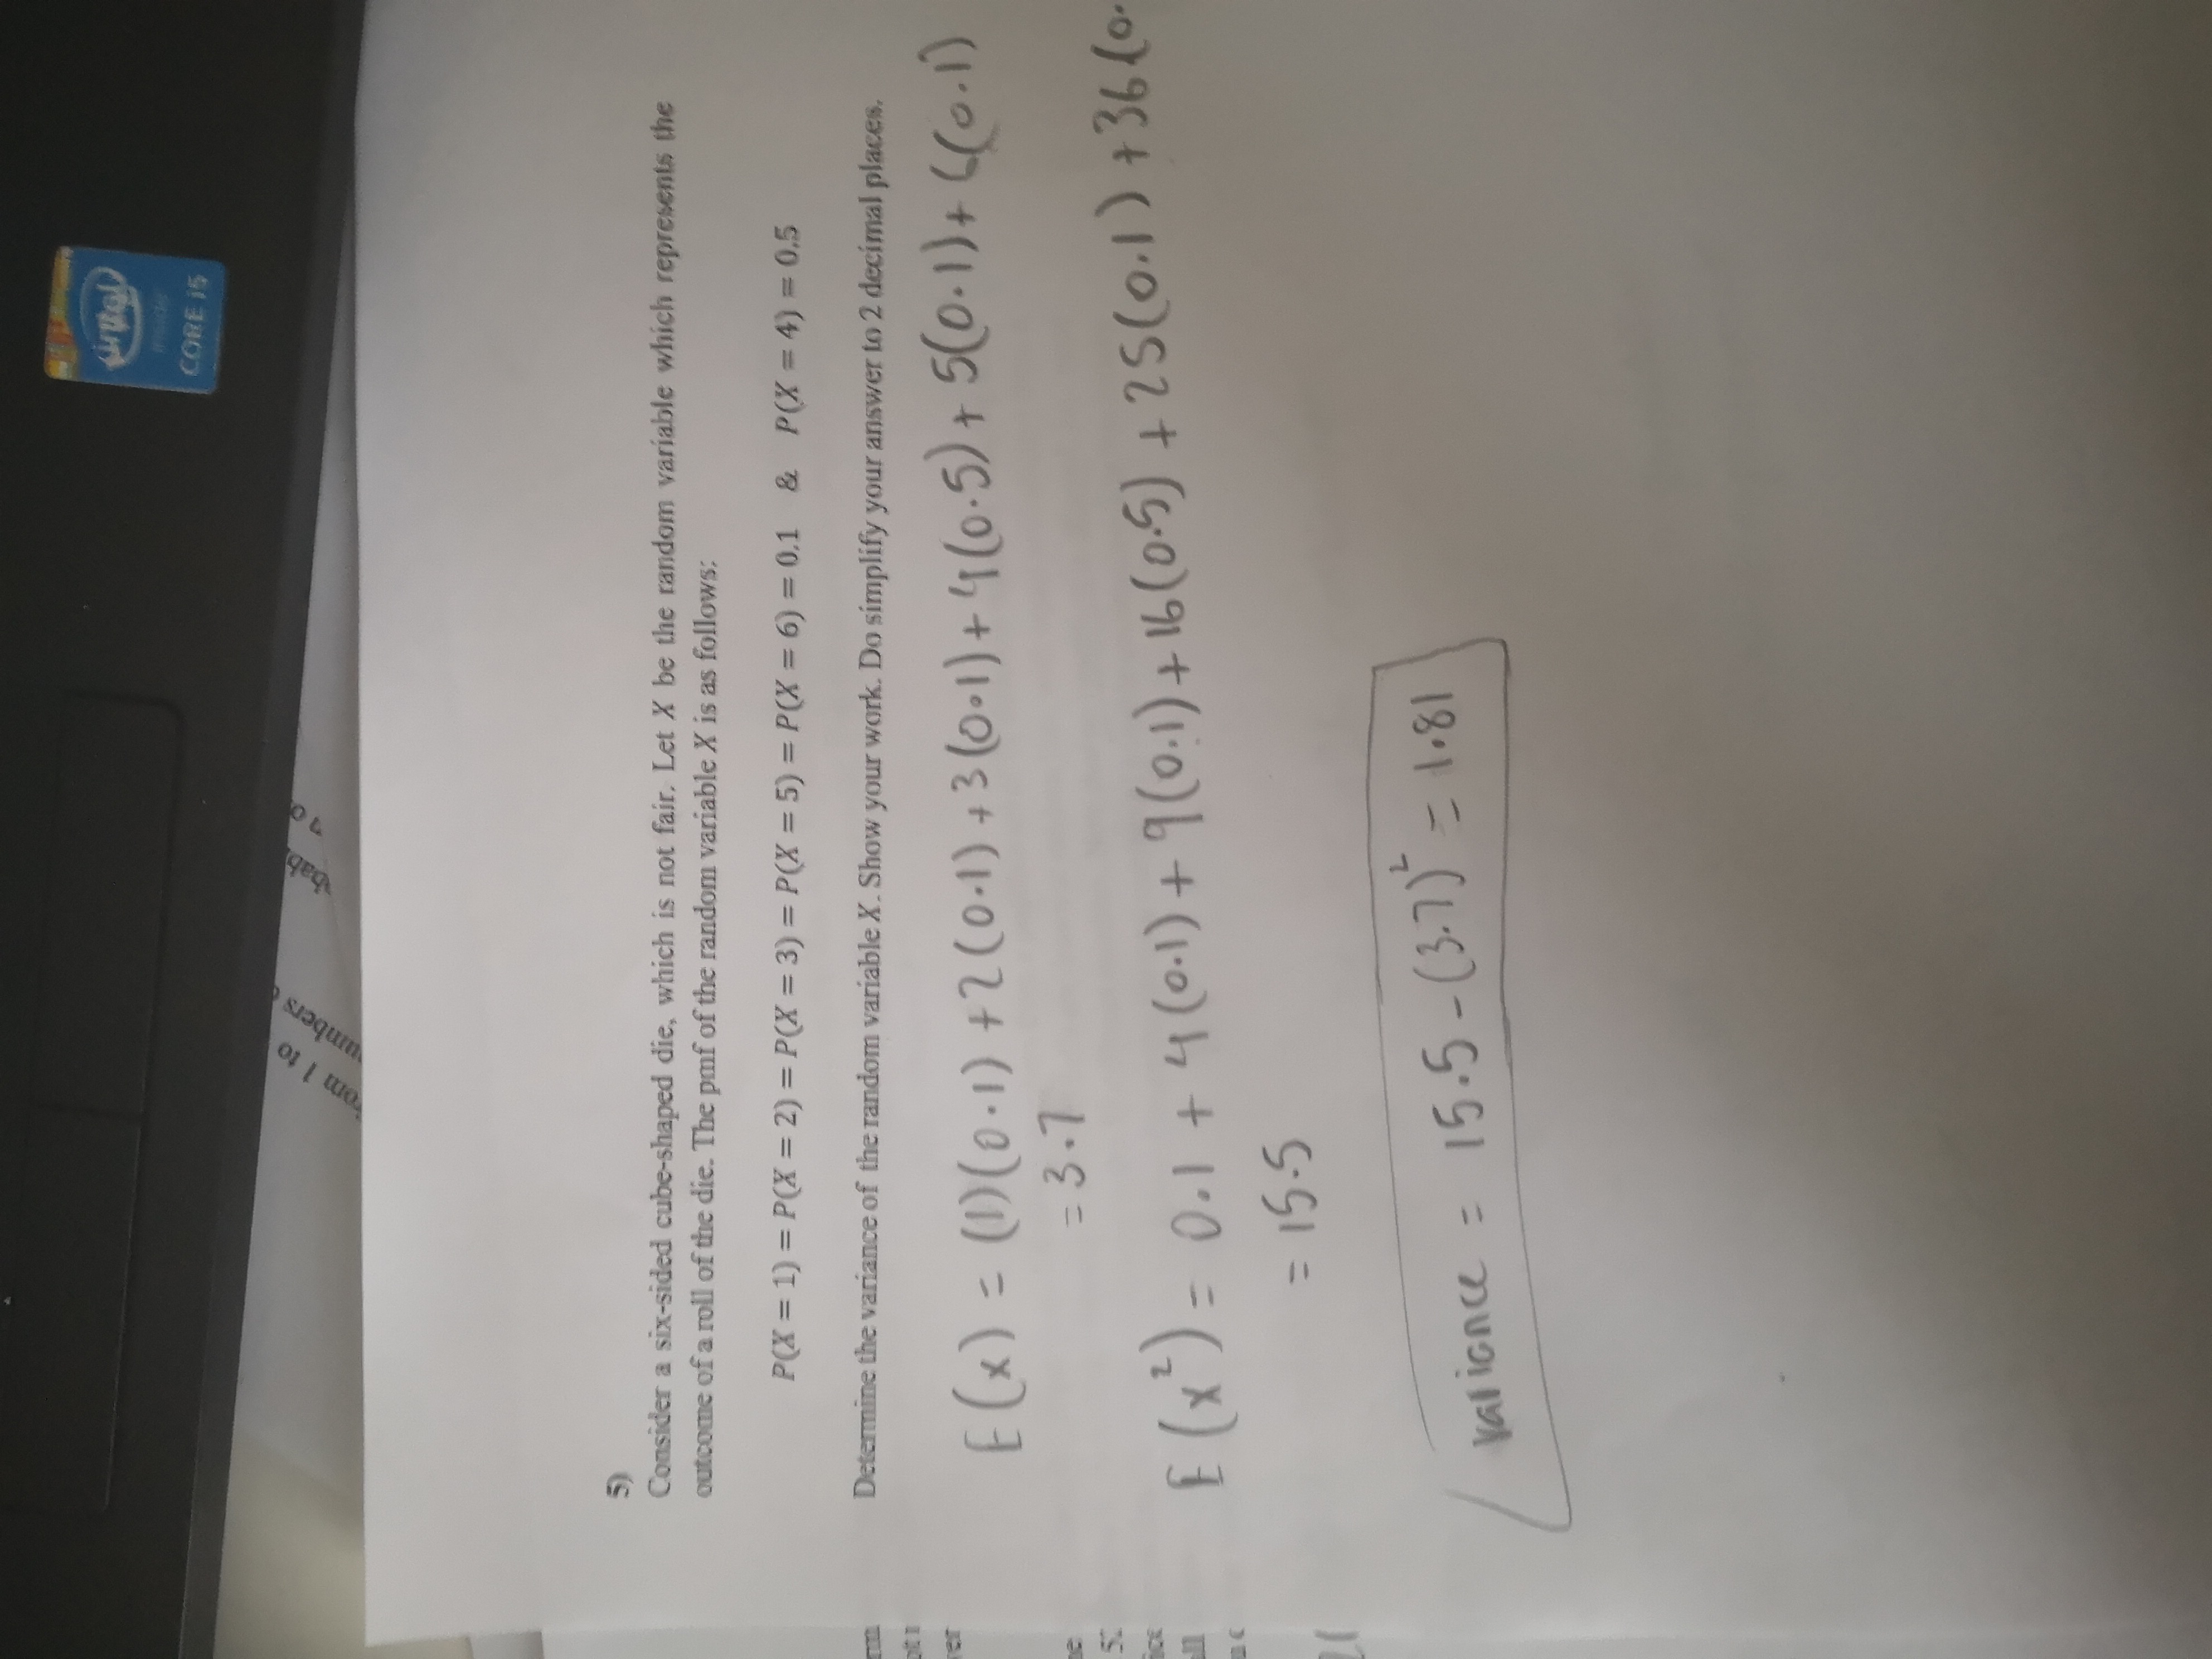 intel
inside
CORE i5
from 1 to
numbers
5)
Consider a six-sided cube-shaped die, which is not fair. Let X be the random variable which represents the
outcome of a roll of the die. The pmf of the random variable X is as follows:
P(X = 1) = P(X = 2) = P(X = 3) = P(X = 5) = P(X = 6) = 0.1 & P(X = 4) = 0.5
Determine the variance of the random variable X. Show your work. Do simplify your answer to 2 decimal places.
E(x) = (1)(0.1) + 2(0.1) + 3(0.1) + 4(0.5) + 5(0.1) + 6(0.1)
= 3.7
E(x²) = 0.1 + 4(0.1) + 9(0.1) + 16(0.5) + 25(0.1) + 36(0.
= 15.5
variance = 15.5 - (3.7)² = 1.81